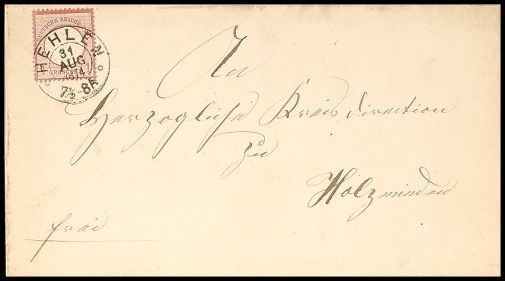 DEUTSCHE REICHS-POST
GROSCHEN
HEHLEN
31
AUG
1874
7½-8N
An
Herzogliche Kreisdirection
zu
Holzminden
frei